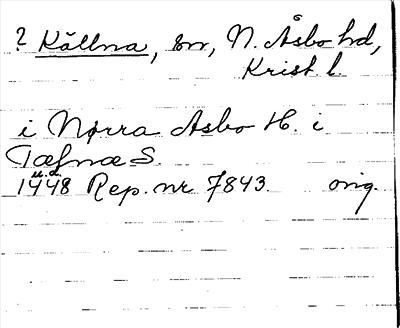 ? Källna, sn, N. Åsbo hd,
Krist. l.
i Nørra Asbo H. i
Tæfnæ S.
u.d.
1448 Rep. nr 7843. orig.